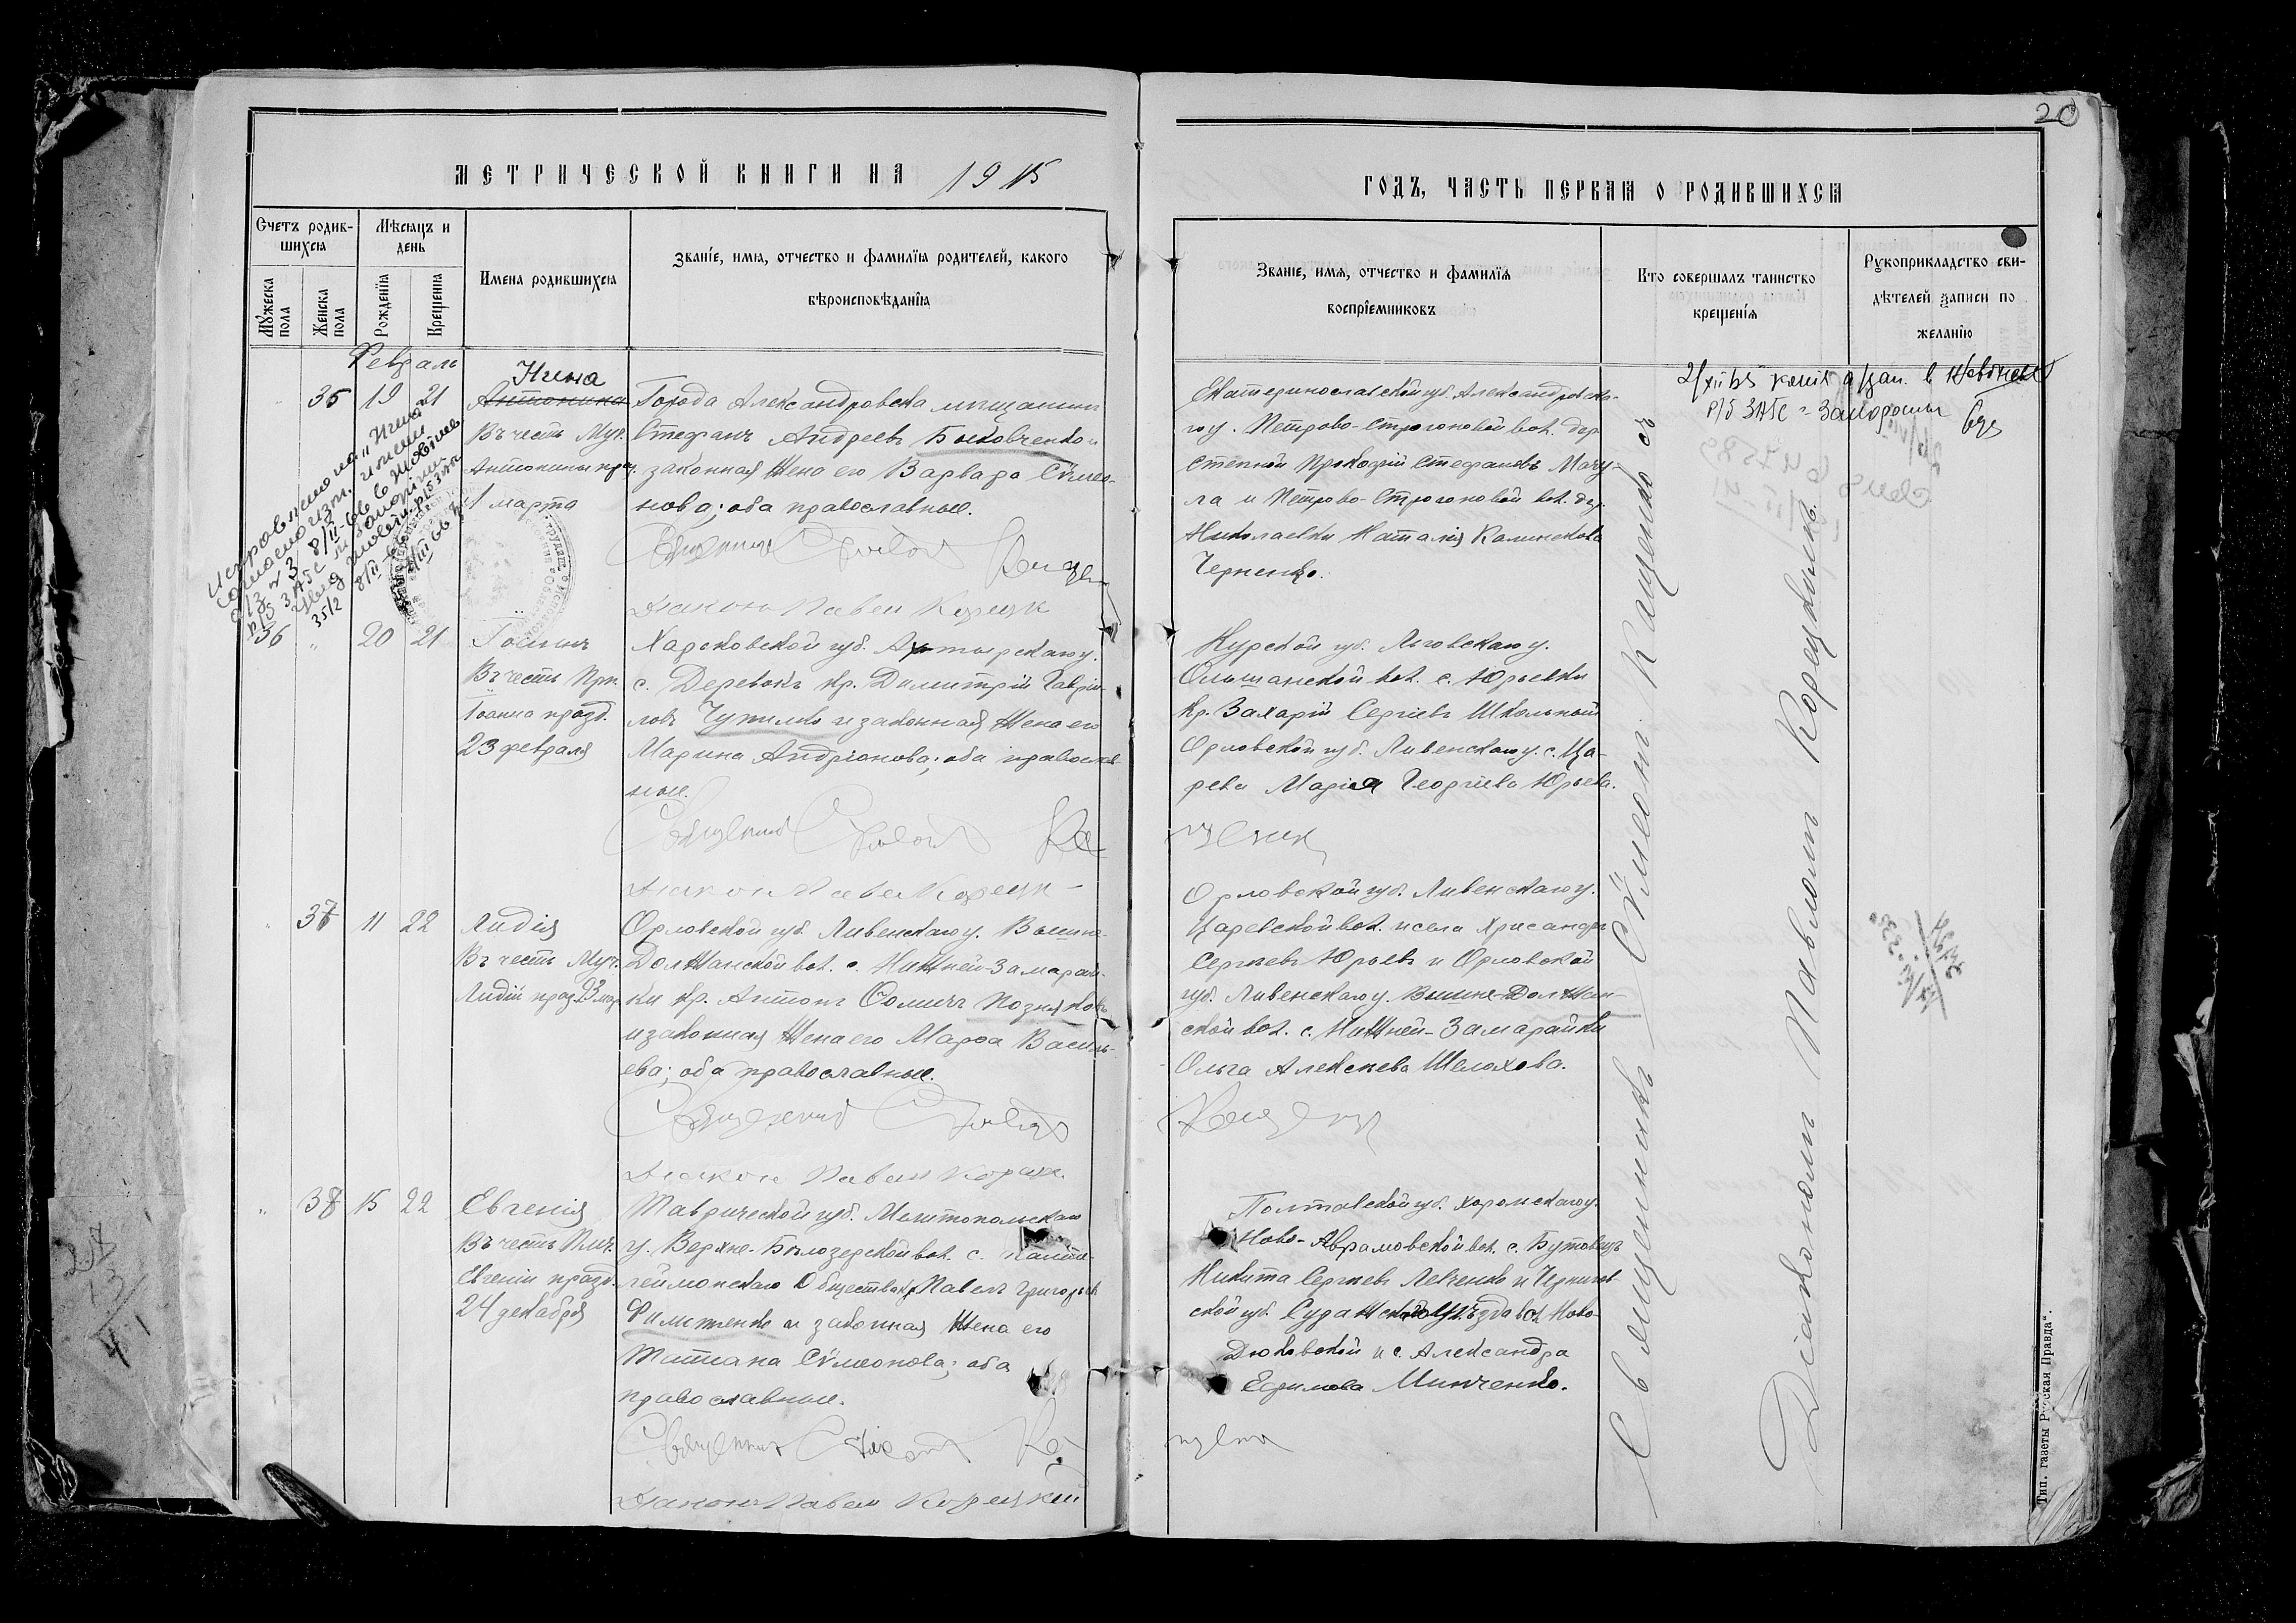 20
МЕТРИЧЕСКОЙ КНИГИ НА 1915
ГОДЪ, ЧАСТЬ ПЕРВАЯ О РОДИВШИХСЯ
Счетъ родив-
шихся
Мѣсяцъ и
день
Мужеска
пола
Женска
пола
Рожденїя
Крещенїя
Имена родившихся
Званїе, имя, отчество и фамилїя родителей, какого
вѣроисповѣданїя
Званїе, имя, отчество и фамилїя
воспрїемниковъ
Кто совершалъ таинство
крещенїя
Рукоприкладство сви-
дѣтелей записи по
желанїю
Февраль
35 19 21
Нина
Антонина
Въ честь Муч.
Антонины праз.
1 марта
Города Александровска мѣщанинъ
Стефанъ Андреевъ Быковченко и
законная жена его Варвара Сѷмео-
нова; оба православные.
Священникъ
Діаконъ Павелъ Корецк
Екатеринославской губ. Александровска-
го у. Петрово-Строгоновой вол. дер.
Степной Прокофій Стефановъ Мачу-
ла и Петрово-Строгоновой вол. дер.
Николаевки Наталія Калинекова
Черненко.
Исправлено на "Нина"
36 " 20 21
Іоаннъ
Въ честь Прп.
Іоанна празд.
23 февраля
Харьковской губ. Ахтырскаго у.
с. Деревокъ кр. Димитрій Гаврїи-
ловъ Чупилко и законная жена его
Марина Андріанова; оба православ-
ные.
Священникъ
Діаконъ Павелъ Корецк
Курской губ. Льговскаго у.
Ольшанской вол. с. Юрьевки
кр. Захарій Сергіевъ Школьный
Орловской губ. Ливенскаго у. с. Ца-
рева Марія Георгіева Юрьева.
" 37 11 22
Лидія
Въ честь Муч.
Лидіи праз. 23 мар.
Орловской губ. Ливенскаго у. Вышне-
Должанской вол. с. Нижней-Замарай-
ки кр. Антонъ Ѳомичъ Позняковъ
и законная жена его Марѳа Василь-
ева; оба православные.
Священникъ
Діаконъ Павелъ Корецк.
Орловской губ. Ливенскаго у.
Царевской вол. и села Хрисанфъ
Сергѣевъ Юрьевъ и Орловской
губ. Ливенскаго у. Вышне-Должан-
ской вол. с. Нижней-Замарайки
Ольга Алексѣева Шелохова.
" 38 15 22
Евгенія
Въ честь Пмч.
Евгеніи празд.
24 декабря
Таврической губ. Мелитопольскаго
у. Верхне-Бѣлозерской вол. с. Панте-
леймонскаго общества кр. Павелъ Григорьев
Филипенко и законная жена его
Татіана Сѷмеонова; оба
православные.
Священникъ
Діаконъ Павелъ Корецкій
Полтавской губ. Хорольскаго у.
Ново-Аврамовской вол. с. Бутовецъ
Никита Сергѣевъ Левченко и Чернигов-
ской губ. Суражскаго уѣзда вол. Ново-
Дроковской и с. Александра
Ефимова Минченко.
Священникъ Сѷмеонъ Кащенко съ
Діакономъ Павломъ Корецкимъ.
Тип. газеты Русская Правда".